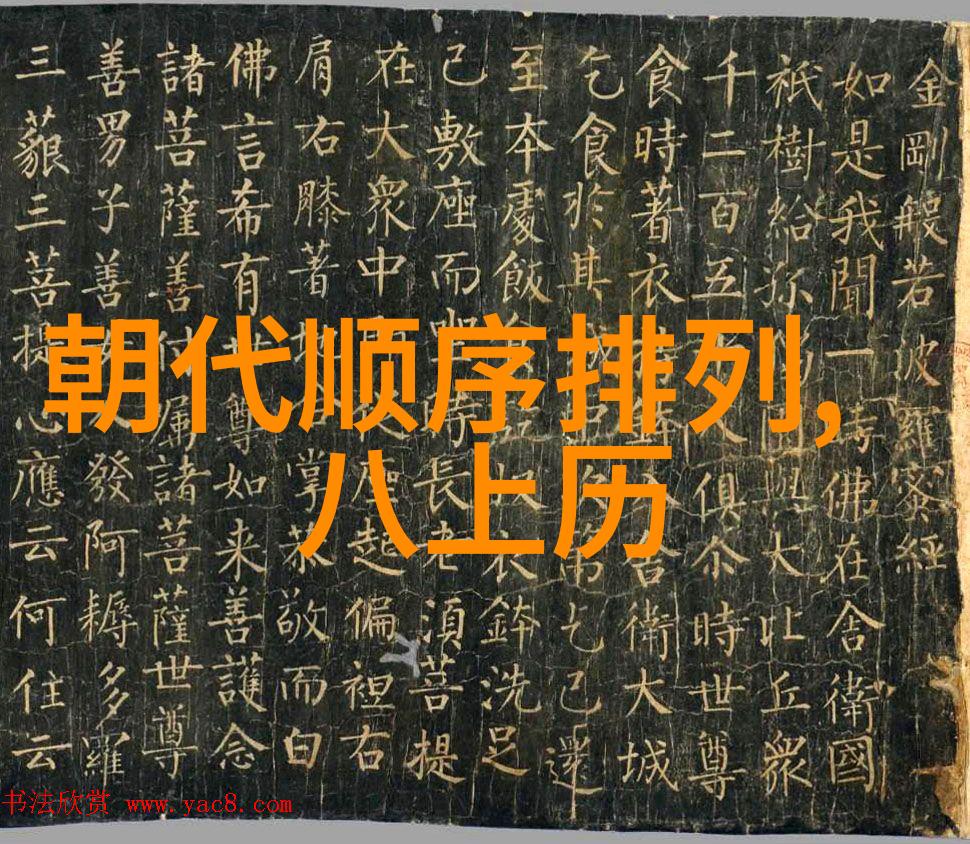 朝代顺序排列,
八上历
金剛般若波羅蜜經
如是我聞一時佛在舍衛國
祇樹給孤園與大比丘眾
千二百五十人俱尒時世尊
食時著衣持舍衛大城
乞食於其城中次第乞已還
至本處飯食訖收衣鉢洗足
已敷座而坐時長老須菩提
在大眾中即從座起偏袒右
肩右膝著地掌恭敬而白
佛言希有世尊如来善護念
諸菩薩善付属諸菩薩世尊
善男子善女人發阿耨多羅
三藐三菩提心應云何住云
书法欣赏 www.yac8.com